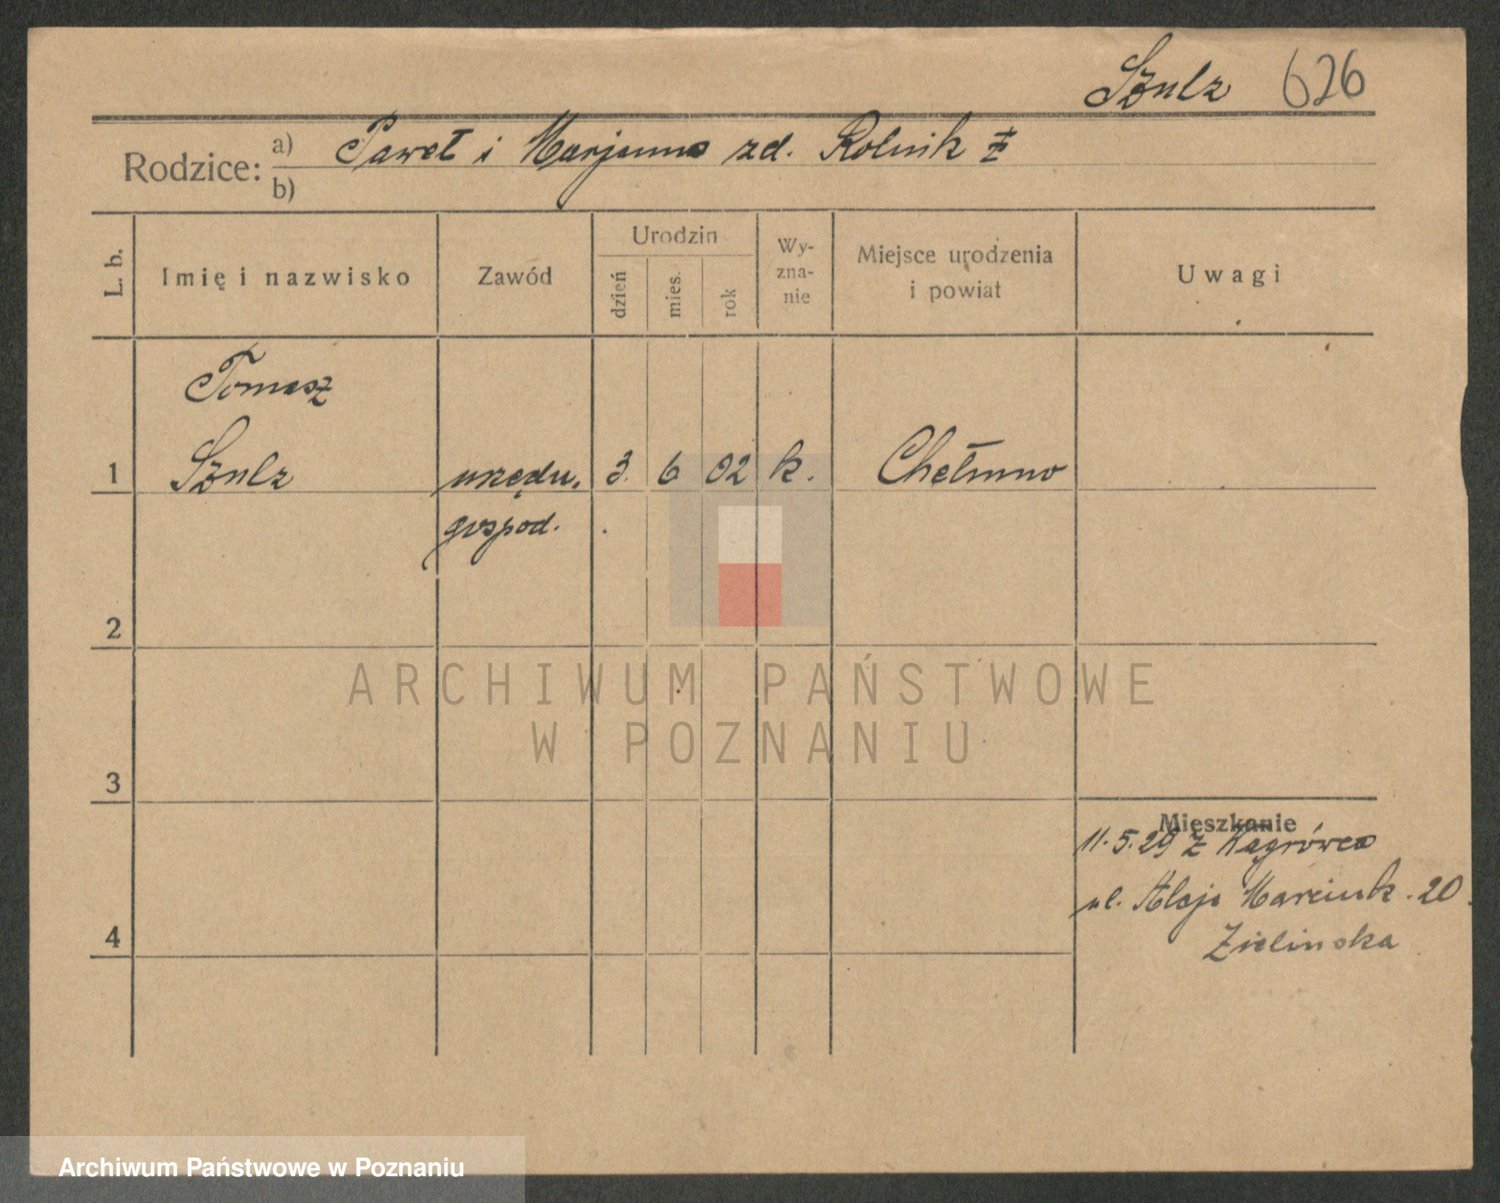 Szulz 626
Rodzice: a) Paweł i Marjanna zd. Rolnik
b)
L. b.
Imię i nazwisko
Zawód
Urodzin
dzień
mies.
rok
Wy-
zna-
nie
Miejsce urodzenia
i powiat
Uwagi
Tomasz
1 Szulz urzędn. 3. 6 02 k. Chełmno
gospod.
2
3
Mieszkanie
11.5.29 z Wągrówca
ul. Aleje Marcink. 20.
4
Zielinska
ARCHIWUM PAŃSTWOWE
W POZNANIU
Archiwum Państwowe w Poznaniu